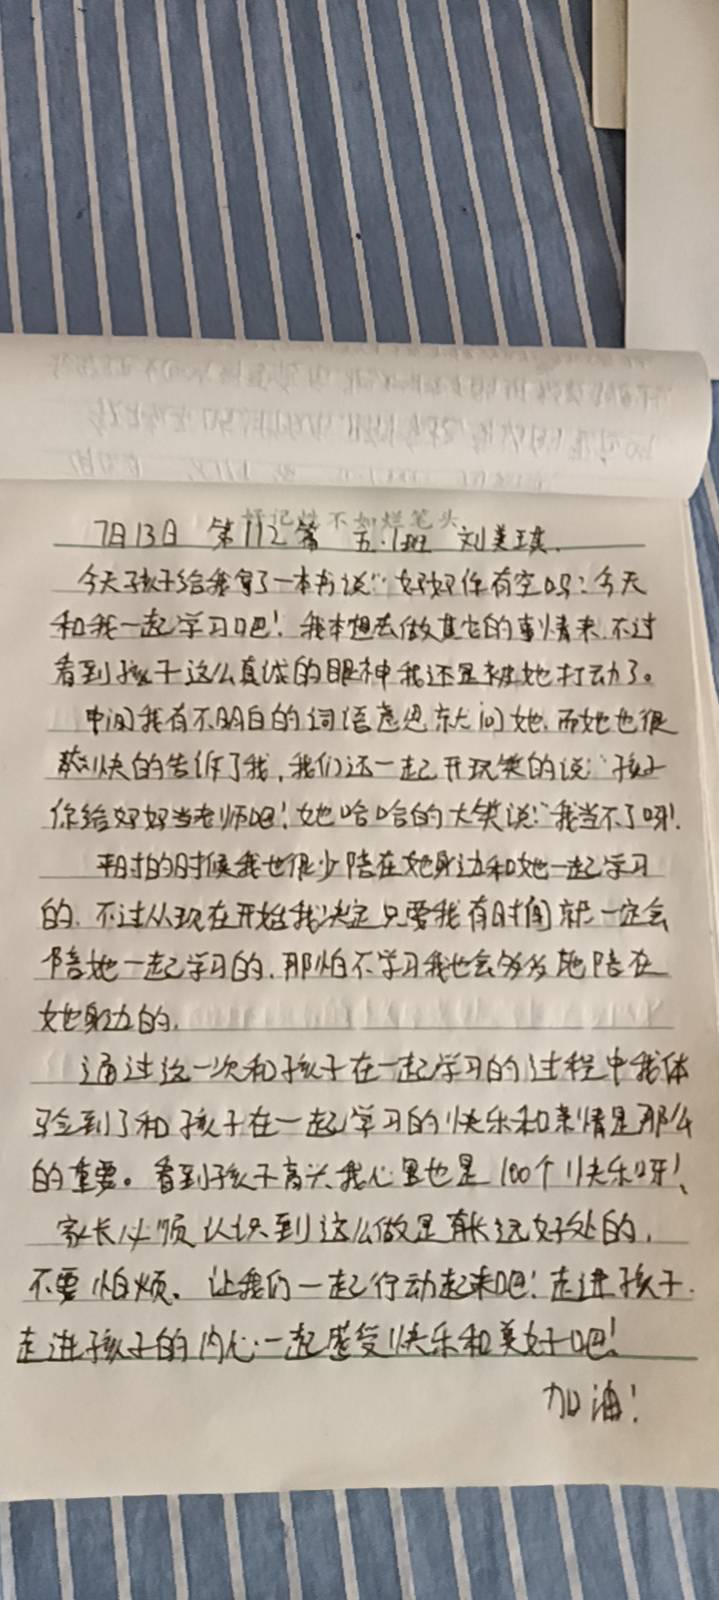 好记性不如烂笔头
7月13日 第112篇 五·1班 刘美琪.
今天孩子给我拿了一本书说:“好好你有空吗?今天
和我一起学习吧!我本想去做其它的事情来.不过
看到孩子这么真诚的眼神我还是被她打动了。
中间我有不明白的词语意思就问她.而她也很
爽快的告诉了我,我们还一起开玩笑的说:“孩子
你给好好当老师吧!她哈哈的大笑说:“我当不了呀!
平时的时候我也很少陪在她身边和她一起学习
的.不过从现在开始我决定只要我有时间就一定会
陪她一起学习的.那怕不学习我也会多多地陪在
她身边的.
通过这一次和孩子在一起学习的过程中我体
验到了和孩子在一起学习的快乐和亲情是那么
的重要。看到孩子高兴.我心里也是100个快乐呀!
家长必须认识到这么做是有长远好处的,
不要怕烦.让我们一起行动起来吧!走进孩子.
走进孩子的内心.一起感受快乐和美好吧!
加油!